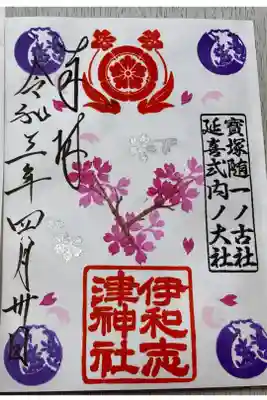 寳塚随一ノ古社
延喜式内ノ大社
奉拝
伊和志
津神社
令和三年四月卅日